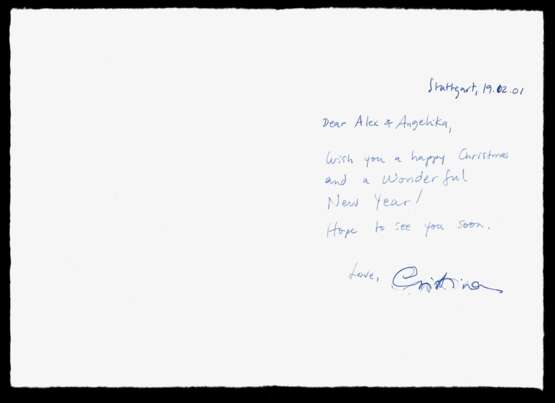 Stuttgart, 19.02.01
Dear Alex & Angelika,
Wish you a happy Christmas
and a Wonderful
New Year!
Hope to see you soon.
Love, Cristina